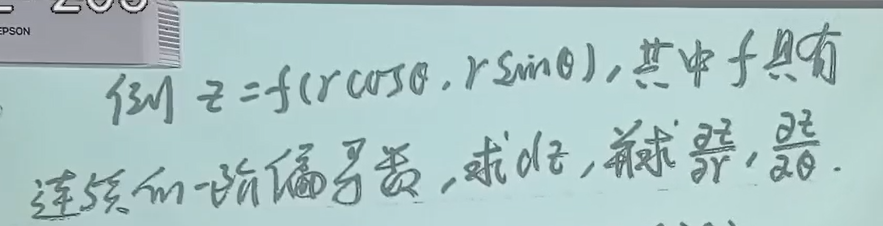 EPSON
例 z=f(rcosθ, rsinθ),其中f具有
连续的一阶偏导数,求dz,并求∂z/∂r, ∂z/∂θ.